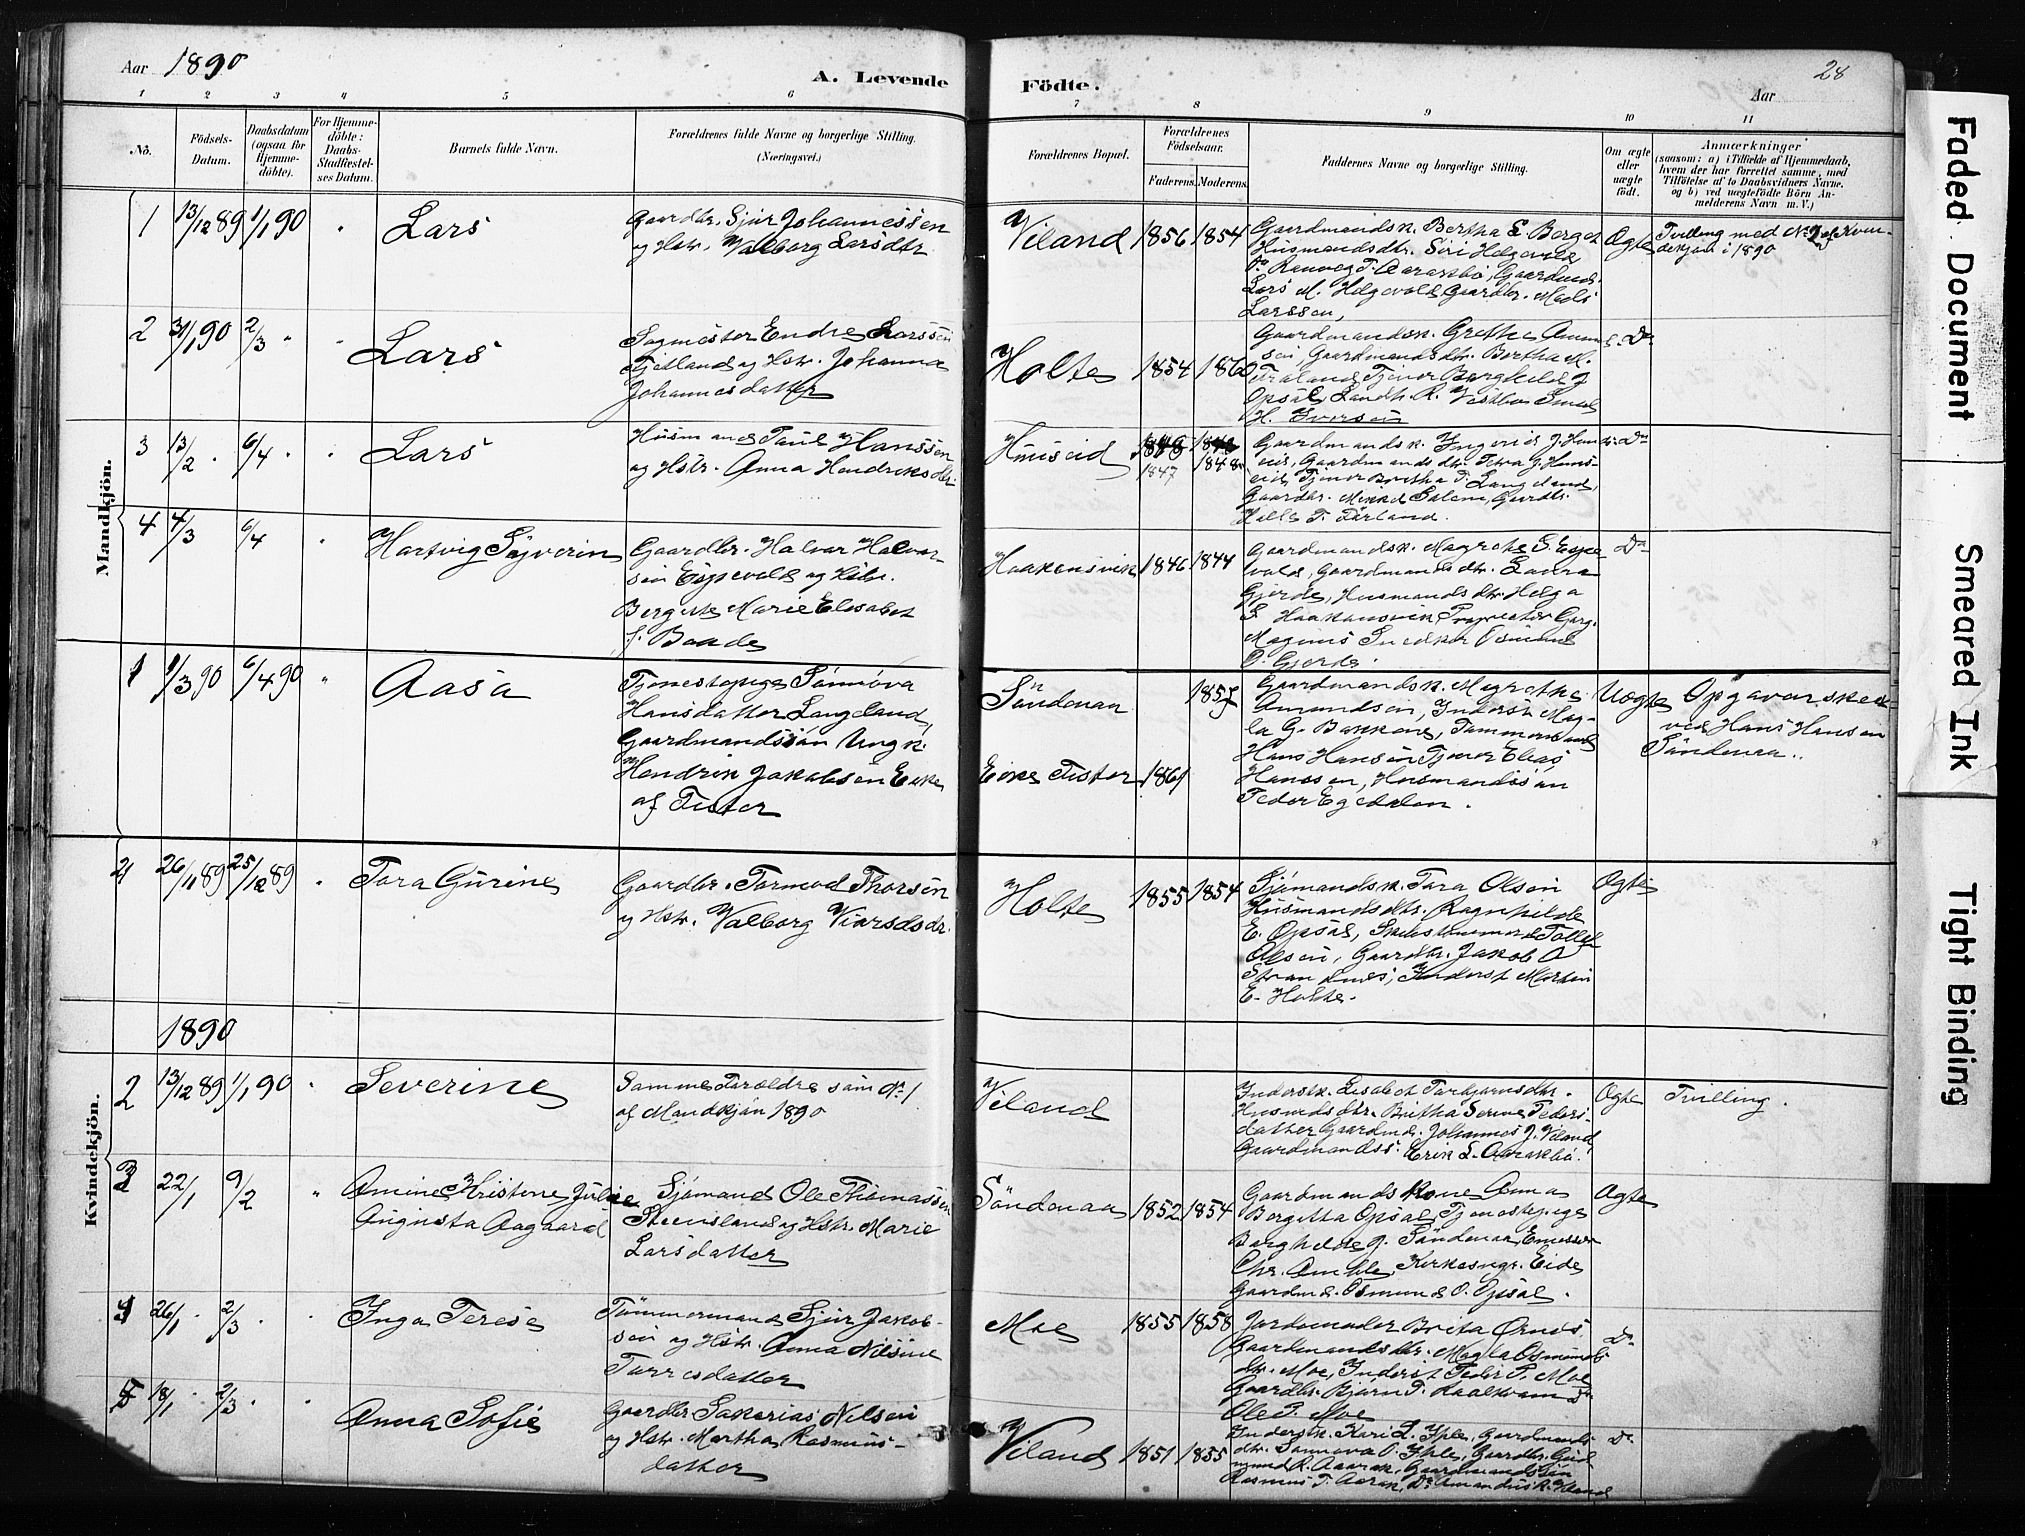 Aar 1890
A. Levende
Födte.
28
Aar
1 2 3 4 5 6 7 8 9 10 11
No.
Födsels-
Datum.
Daabsdatum
(ogsaa for
Hjemme-
döbte).
For Hjemme-
döbte:
Daabs-
Stadfæstel-
ses Datum.
Barnets fulde Navn.
Forældrenes fulde Navne og borgerlige Stilling.
(Næringsvei.)
Forældrenes Bopæl.
Forældrenes
Födselsaar.
Faderens. Moderens.
Faddernes Navne og borgerlige Stilling.
Om ægte
eller
uægte
födt.
Anmærkninger
(saasom: a) i Tilfælde af Hjemmedaab,
hvem der har forrettet samme, med
Tilföielse af to Daabsvidners Navne.
og b) ved uægtefödte Börn An-
melderens Navn m. V.)
Mandkjön.
1 13/12 89 1/1 90 " Lars
Gaardbr. Sjur Johannessen
og Hstr. Valborg Larsdtr.
Viland 1856 1854
Gaardmandsk. Bertha L. Berget
Husmandsdtr. Siri Helgevold
Lars M. Helgevold, Gaardbr. Mads
Larssen,
Ægte
Tvilling med No 2 af Kvin-
dekjön i 1890
2 31/1 90 2/3 " " Lars
Sagmester Endre Larssen
Fjetland og Hstr. Johanna
Johannesdatter
Holte 1854 1860
Gaardmandsk. Grethe Amund-
sen, Gaardmandsdtr. Bertha M.
Opsal, Landh. R. Vestbø
H. Iversen
Do
3 13/2 " 6/4 " " Lars
Husmand Paul Hanssen
og Hstr. Anna Hendriksdtr.
1847
1848
Gaardbr. Mikkel Salem, Gaardbr.
Do
4 4/3 6/4 " Hartvig Syverin
Gaardbr. Halvar Halvar-
sen Espevold og Hstr.
Bergitte Marie Elisabet
f. Baade
Haakensvik 1846 1844
Gaardmandsk. Magrethe S. Espe-
vold, Gaardmandsdtr. Laura
Gjerde, Husmandsdtr. Helga
L Haakensvik Proprietær Garg.
Magnus Snedker Osmund
O. Gjerde.
Do
1 1/3 90 6/4 90 " Aasa
Tjenestepige Sønnøva
Hansdatter Langeland,
Gaardmandssøn Ungk.
Hendrik Jakobsen Eike
af Fister
Söndenaa 1857
Eike Fister 1861
Gaardmandsk. Magrethe
Amundsen, Inderst Mag-
la G. Bakkene, Tømmermand
Hans Hansen Tjener Elias
Hanssen, Husmandssøn
Peder Egedalen.
Uægte
Opgaven skeet
ved Hans Hansen
Söndenaa.
21 26/11 89 25/12 89 " Tara Gurine
Gaardbr. Tormod Thorsen
og Hstr. Valborg Viarsdtr.
Holte 1855 1854
Sjömandsk. Tara Olsen
Husmandsdtr. Ragnhilde
E. Opsal, Skibstømmermand Tollef
Olsen, Gaardbr. Jakob O
Strandnes, Inderst Martin
E. Holte.
Ægte
1890
Kvindekjön.
2 13/12 89 1/1 90 " Severine
Samme Forældre som No 1
af Mandkjön 1890
Viland
Inderstk. Lisabet Torbjørnsdtr.
Husmdsdtr. Britha Serine Peders
datter Gaardmd. Johannes J. Viland
Gaardmandss. Erik L. Aarakbø.
Ægte
Tvilling.
3 22/1 9/2 " Amine Kristene Juline
Augusta Aagaard
Sjömand Ole Thomassen
Steensland og Hstr. Marie
Larsdatter
Söndenaa 1852 1854
Gaardmands Kone Anna
Bergitta Opsal, Tjenestepige
Borghilde J. Söndenaa, Emissær
Chr. Amble, Kirkesngr. Eide
Gaardmd. Osmund O. Opsal.
Ægte
4 26/1 " 2/3 " " Inga Terese
Tømmermand Sjur Jakob-
sen og Hstr. Anna Nilsine
Torresdatter
Moe 1855 1858
Jordemoder Brita Ørnes
Gaardmandsdtr. Magla Osmunds
dtr. Moe, Inderst Peder P. Moe
Gaardbr. Bjørn T. Kaalkvam Do
Ole P. Moe
Do
5 18/1 " 2/3 " " Anna Sofie
Gaardbr. Sakarias Nilsen
og Hstr. Martha Rasmus-
datter
Viland 1851 1855
Inderstk. Kari L. Hple, Gaardmands
dtr. Sønnova O. Hple, Gaardbr. Gud
mund R. Aarak, Gaardmandssøn
Rasmus T. Aarak, Do Amandus K. Viland
Do
Faded Document
Smeared Ink
Tight Binding